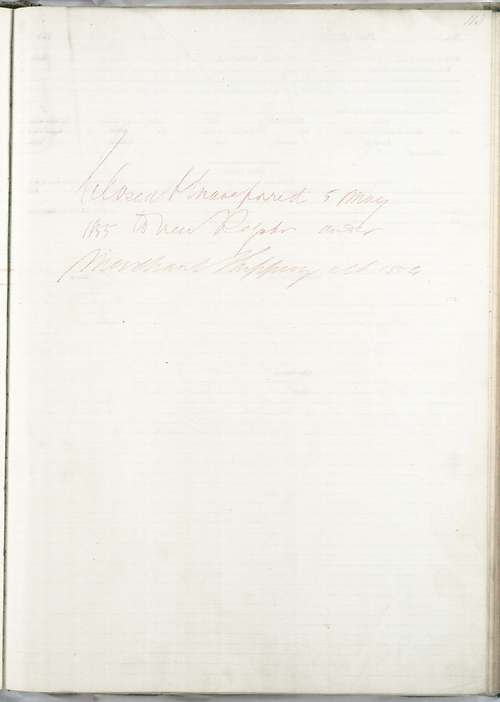 Closed & transferred 5 May
1855 to new Register under
Merchant Shipping Act 1854